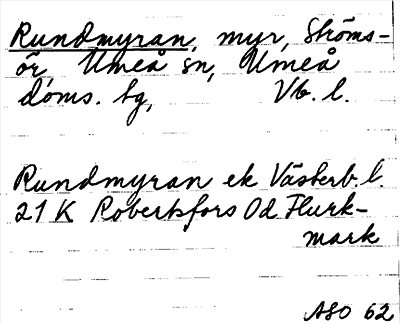 Rundmyran, myr, Ströms-
ör, Umeå sn, Umeå
doms. bg, Vb. l.
Rundmyran ek Västerb. l.
21 K Robertsfors Od Flurk-
mark
ASO 62